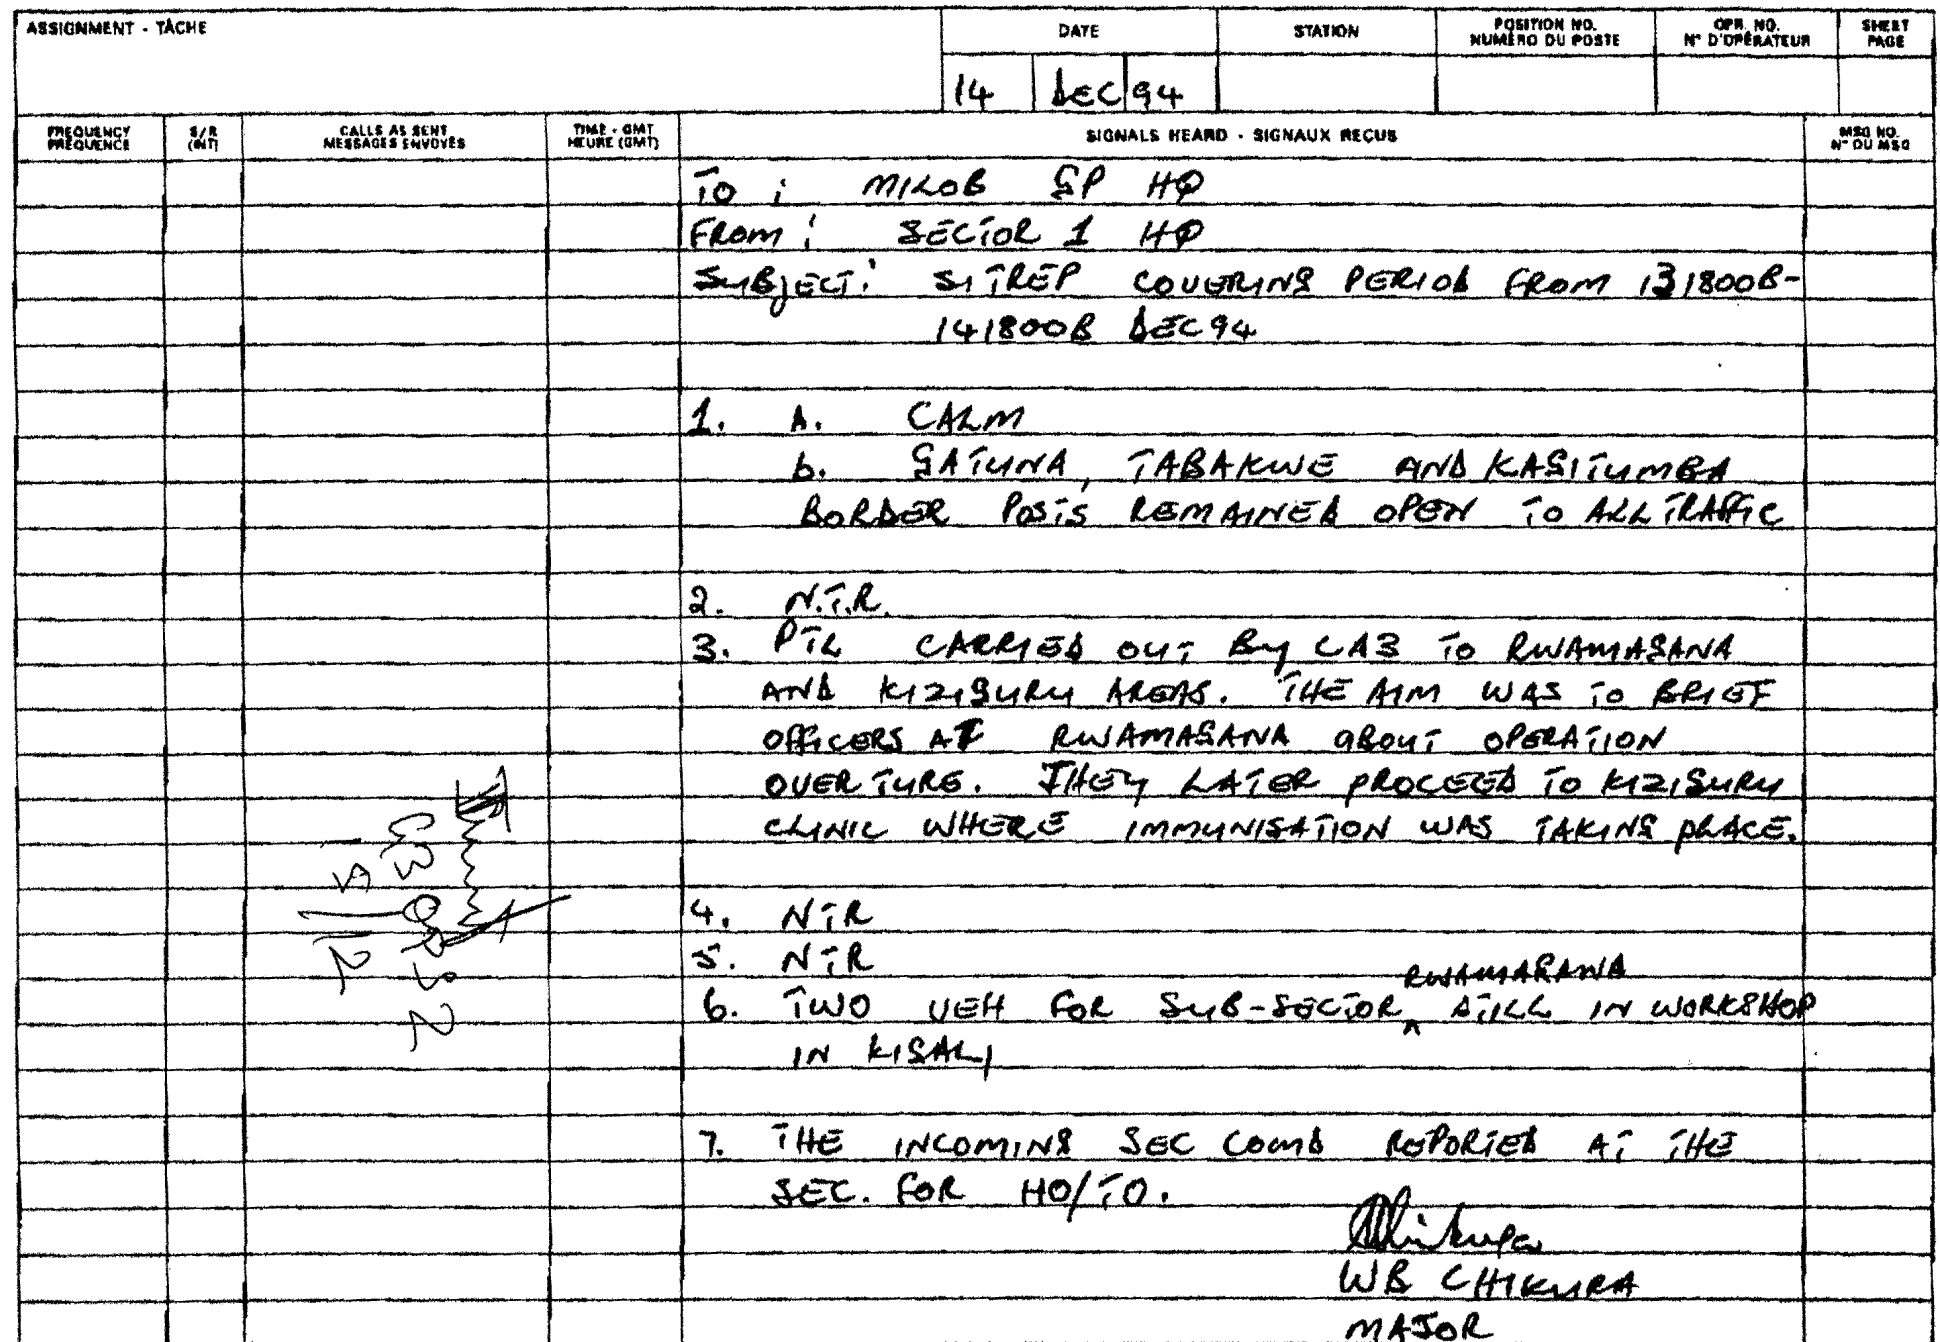 ASSIGNMENT - TÂCHE
DATE
STATION
POSITION NO.
NUMÉRO DU POSTE
OPR. NO.
N° D'OPÉRATEUR
SHEET
PAGE
14 DEC 94
FREQUENCY
FRÉQUENCE
S/R
(INT)
CALLS AS SENT
MESSAGES ENVOYÉS
TIME - GMT
HEURE (GMT)
SIGNALS HEARD - SIGNAUX REÇUS
MSG NO.
N° DU MSG
TO : MILOB GP HQ
FROM : SECTOR 1 HQ
SUBJECT : SITREP COVERING PERIOD FROM 131800B-
141800B DEC 94
1. A. CALM
b. GATUNA, TABAKWE AND KAGITUMBA
BORDER POSTS REMAINED OPEN TO ALL TRAFFIC
2. N.T.R.
3. PTL CARRIED OUT By CA3 TO RWAMAGANA
AND KIZIGURU AREAS. THE AIM WAS TO BRIEF
OFFICERS AT RWAMAGANA ABOUT OPERATION
OVERTURE. THEY LATER PROCEED TO KIZIGURU
CLINIC WHERE IMMUNISATION WAS TAKING PLACE.
4. NTR
5. NTR
RWAMAGANA
6. TWO VEH FOR SUB-SECTOR ^ STILL IN WORKSHOP
IN KIGALI
7. THE INCOMING SEC COMD REPORTED AT THE
SEC. FOR HO/TO.
WB CHIKURA
MAJOR